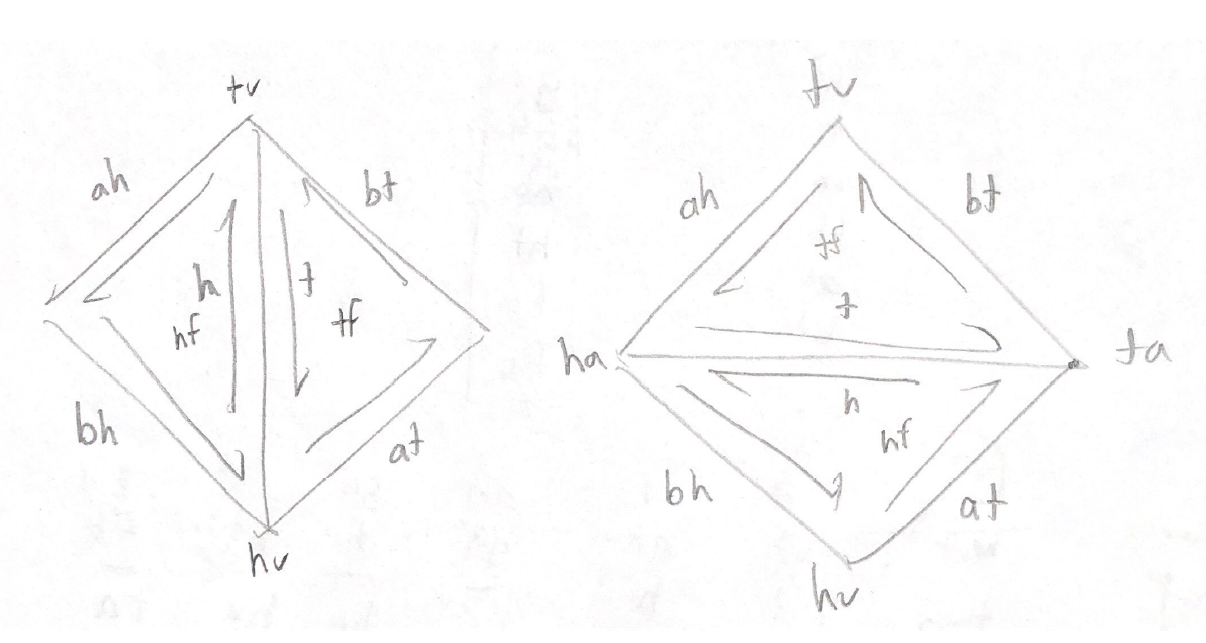 tv
ah
bt
h
t
hf
tf
bh
at
hv
tv
ah
bt
tf
t
ha
ta
h
hf
bh
at
hv